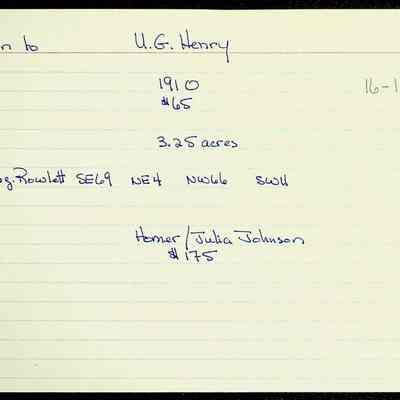 n to U.G. Henry
1910 16-1
$65
3.25 acres
g. Rowlett SE69 NE4 NW66 SW11
Homer/Julia Johnson
$175